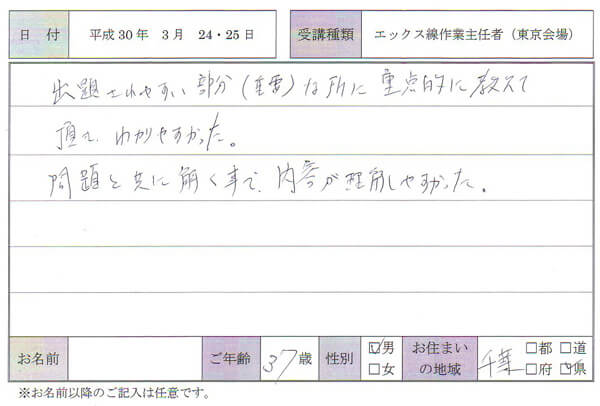 日付 平成30年 3月 24・25日 受講種類 エックス線作業主任者（東京会場）
出題されやすい部分（重要）な所に重点的に教えて
頂て、わかりやすかった。
問題を共に解く事で、内容が理解しやすかった。
お名前 ご年齢 37歳 性別 ☑男 □女 お住まいの地域 千葉 □都 □道 □府 ☑県
※お名前以降のご記入は任意です。